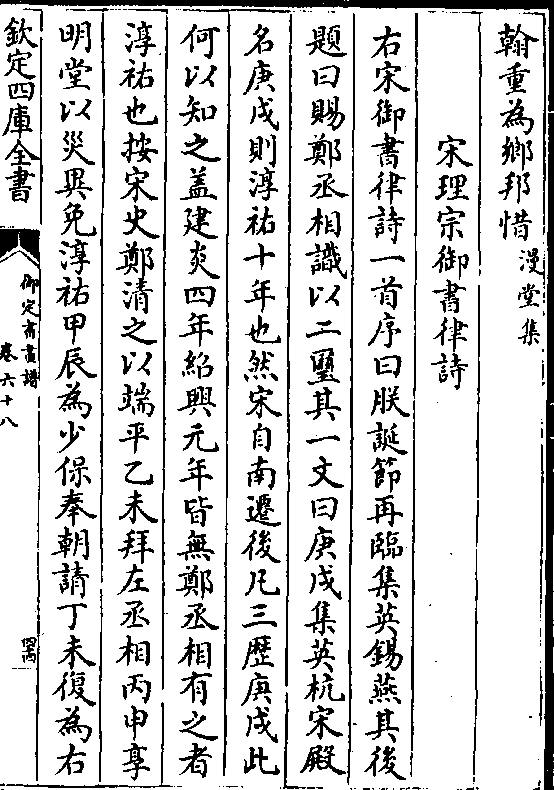 翰重為鄉邦惜漫堂集
宋理宗御書律詩
右宋御書律詩一首序曰朕誕節再臨集英錫燕其後
題曰賜鄭丞相識以二璽其一文曰庚戌集英杭宋殿
名庚戌則淳祐十年也然宋自南遷後凡三歷庚戌此
何以知之盖建炎四年紹興元年皆無鄭丞相有之者
淳祐也按宋史鄭清之以端平乙未拜左丞相丙申享
明堂以災異免淳祐甲辰為少保奉朝請丁未復為右
欽定四庫全書
御定書畫譜
卷六十八